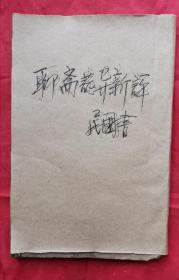 聊斋志异新评
民国书